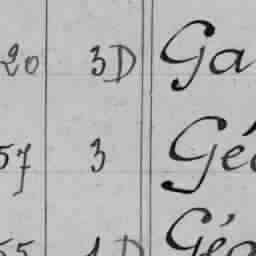 20 3D Ga
57 3 Gé
55 1D Géo